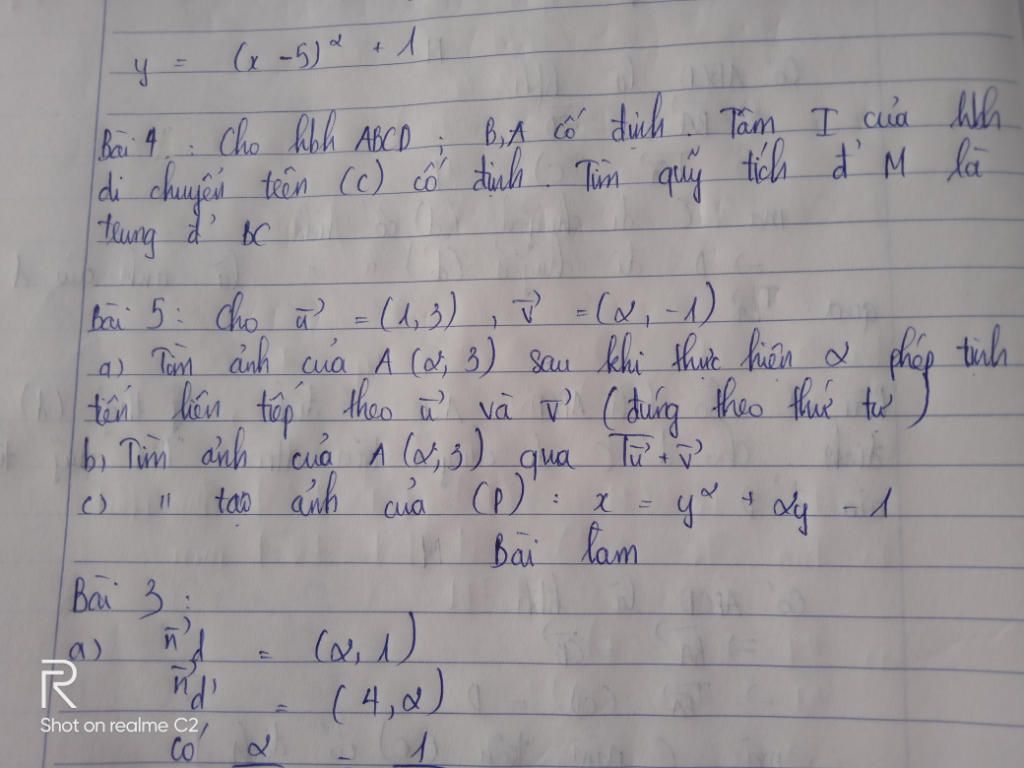 y = (x - 5)² + 1
Bài 4 : Cho hbh ABCD ; B, A cố định. Tâm I của hbh
di chuyển trên (C) cố định. Tìm quỹ tích đ' M là
trung đ' BC
Bài 5 : Cho u⃗ = (1, 3) , v⃗ = (2, -1)
a) Tìm ảnh của A (2, 3) sau khi thực hiện 2 phép tịnh
tến liên tiếp theo u⃗ và v⃗ (đúng theo thứ tự)
b, Tìm ảnh của A (2, 3) qua Tu⃗ + v⃗
c) " tạo ảnh của (P) : x = y² + 2y - 1
Bài làm
Bài 3 :
a) n⃗d = (2, 1)
n⃗d' = (4, 2)
Shot on realme C2
có 2 = 1